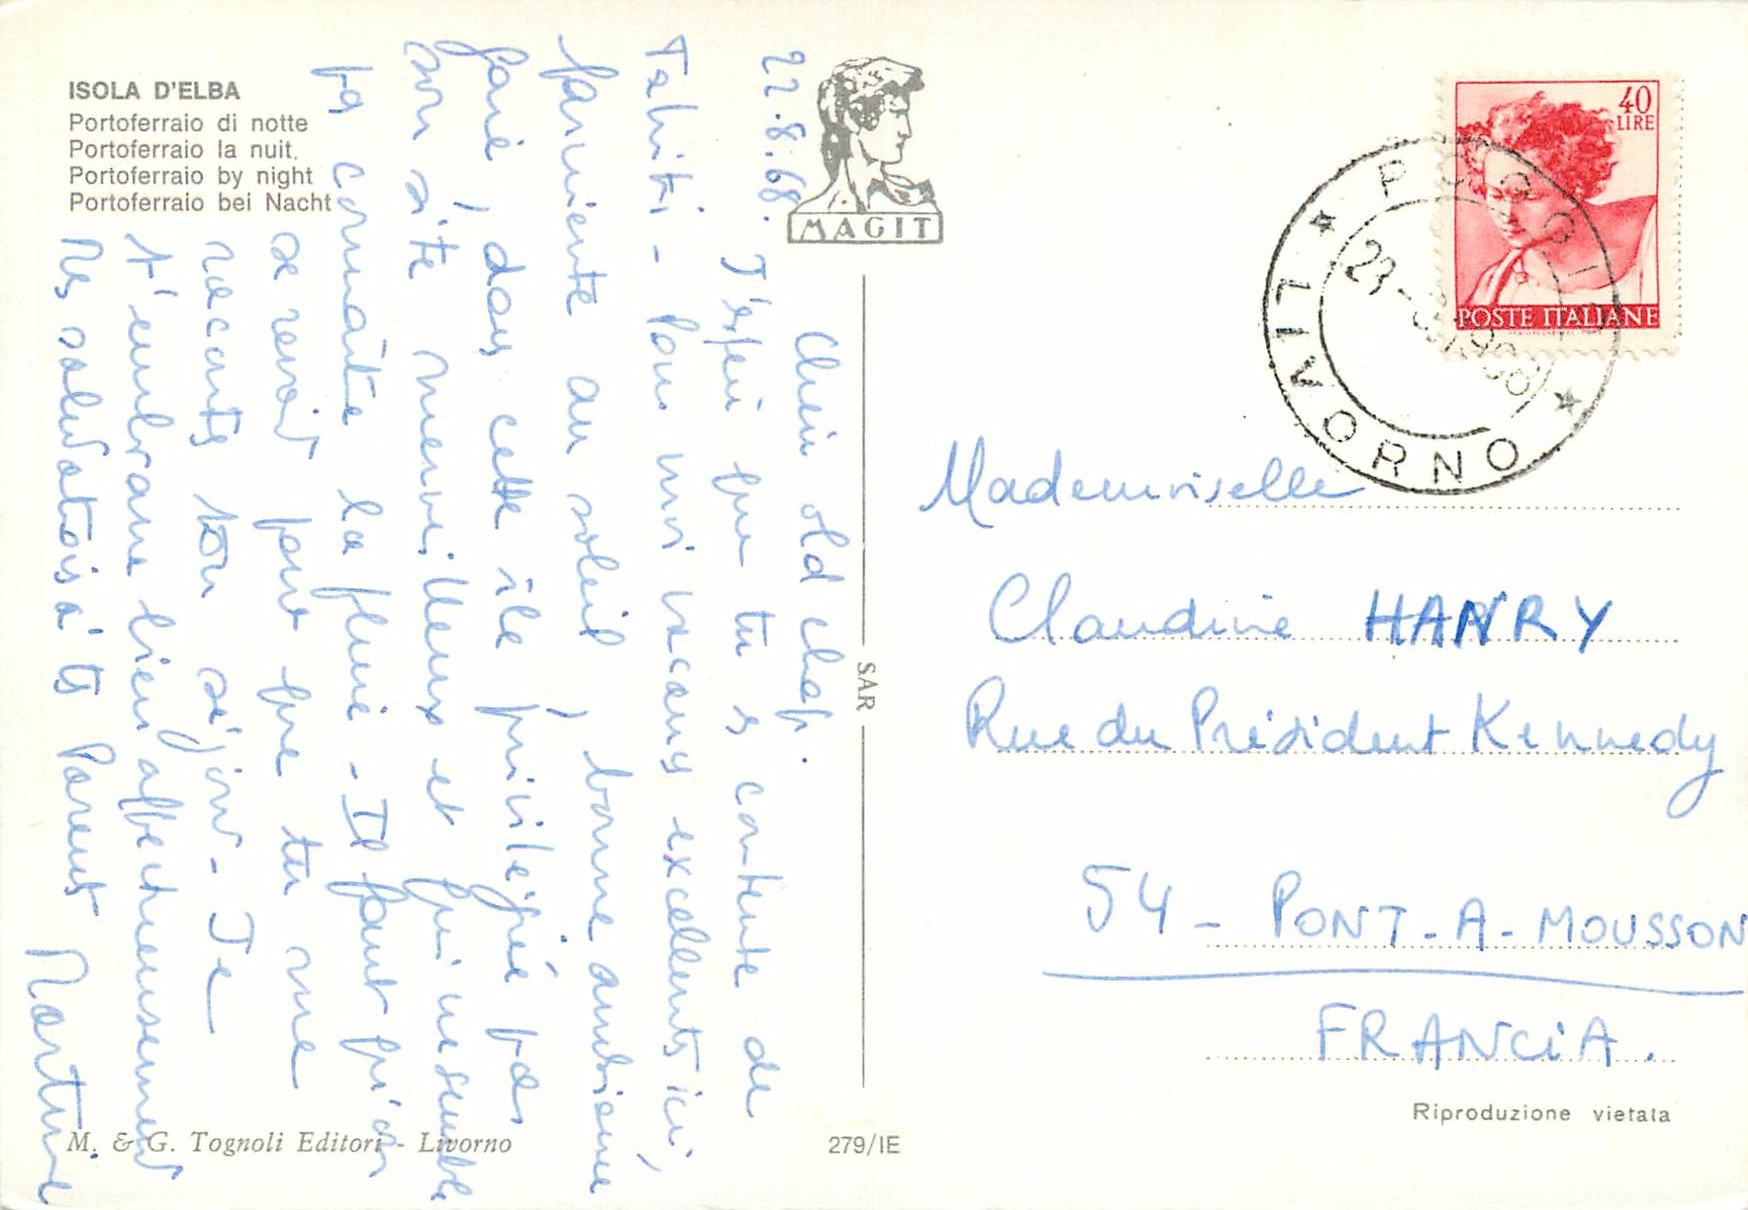 ISOLA D'ELBA
Portoferraio di notte
Portoferraio la nuit.
Portoferraio by night
Portoferraio bei Nacht
22.8.68.
Chère old chap.
J'espère que tu es contente de
Tahiti - Pour moi vacances excellentes ici,
farniente au soleil, bonne ambiance
gaie, dans cette île privilégiée pas
son site merveilleux et qui ne semble
pas connaître la pluie - Il faut qu'on
se revoit pour que tu me
racontes ton séjour - Je
t'embrasse bien affectueusement
Mes salutations à tes Parents Martine
MAGIT
SAR
M. & G. Tognoli Editori - Livorno
279/IE
40
LIRE
POSTE ITALIANE
POGGIO
LIVORNO
Mademoiselle
Claudine HANRY
Rue du Président Kennedy
54 - PONT-A-MOUSSON
FRANCIA.
Riproduzione vietata